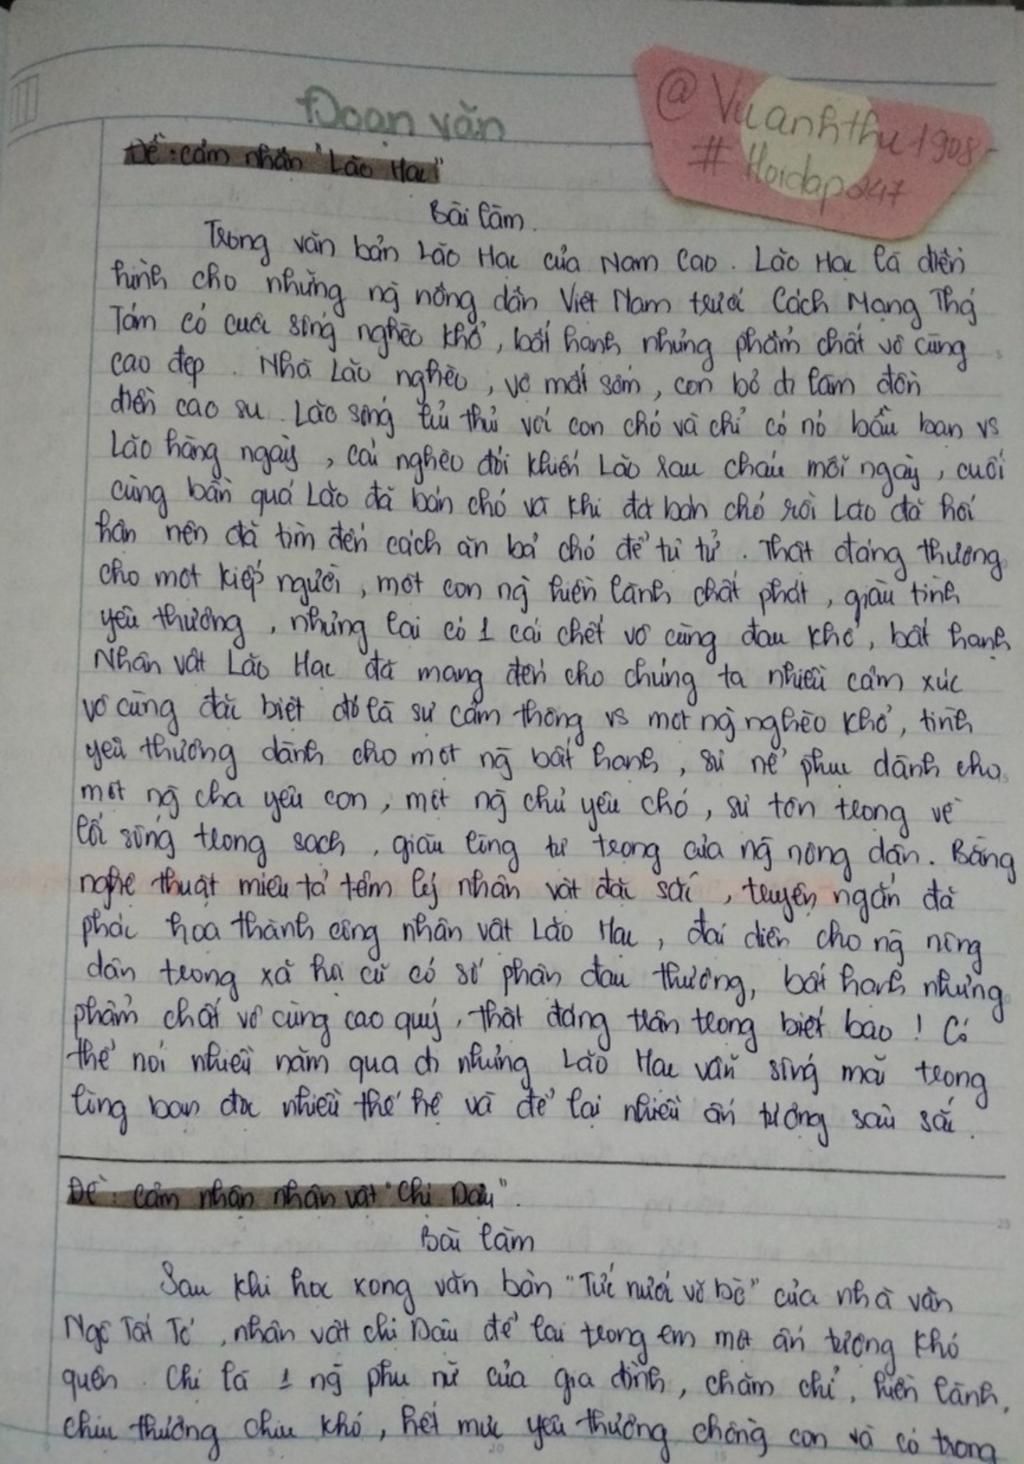 Đoạn văn
@Vuanhthu1908-
# Hoidap247
Đề: cảm nhận "Lão Hạc"
Bài làm.
Trong văn bản Lão Hạc của Nam Cao. Lão Hạc là điển
hình cho những ng̃ nông dân Việt Nam trước Cách Mạng Thg
Tám có cuộc sống nghèo khổ, bất hạnh nhưng phẩm chất vô cùng
cao đẹp. Nhà Lão nghèo, vợ mất sớm, con bỏ đi làm đồn
điền cao su. Lão sống lủi thủi với con chó và chỉ có nó bầu bạn vs
Lão hằng ngày, cái nghèo đói khiến Lão rau cháu mỗi ngày, cuối
cùng bần quá Lão đã bán chó và khi đã bán chó rồi Lão đã hối
hận nên đã tìm đến cách ăn bả chó để tự tử. Thật đáng thương
cho một kiếp người, một con ng̃ hiền lành chất phát, giàu tình
yêu thương, nhưng lại có 1 cái chết vô cùng đau khổ, bất hạnh
Nhân vật Lão Hạc đã mang đến cho chúng ta nhiều cảm xúc
vô cùng đặc biệt đó là sự cảm thông vs một ng̃ nghèo khổ, tình
yêu thương dành cho một ng̃ bất hạnh, sự nể phục dành cho
một ng̃ cha yêu con, một ng̃ chủ yêu chó, sự tôn trọng về
lối sống trong sạch, giàu lòng tự trọng của ng̃ nông dân. Bằng
nghệ thuật miêu tả tâm lý nhân vật đặc sắc, truyện ngắn đã
phác họa thành công nhân vật Lão Hạc, đại diện cho ng̃ nông
dân trong xã hội cũ có số phận đau thương, bất hạnh nhưng
phẩm chất vô cùng cao quý, thật đáng trân trọng biết bao! Có
thể nói nhiều năm qua đi nhưng Lão Hạc vẫn sống mãi trong
lòng bạn đọc nhiều thế hệ và để lại nhiều ấn tượng sâu sắc.
Đề: Cảm nhận nhân vật "Chị Dậu".
Bài làm
Sau khi học xong văn bản "Tức nước vỡ bờ" của nhà văn
Ngô Tất Tố, nhân vật chị Dậu để lại trong em một ấn tượng khó
quên. Chị là 1 ng̃ phụ nữ của gia đình, chăm chỉ, hiền lành,
chịu thương chịu khó, hết mực yêu thương chồng con và có trong